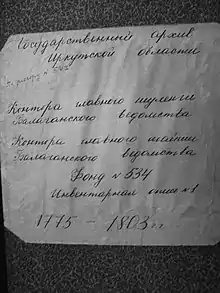 Государственный архив
Иркутской области
Контора главного шуленги
Балаганского ведомства
Контора главного тайши
Балаганского ведомства
Фонд № 534
Инвентарная опись № 1
1775 - 1803 гг